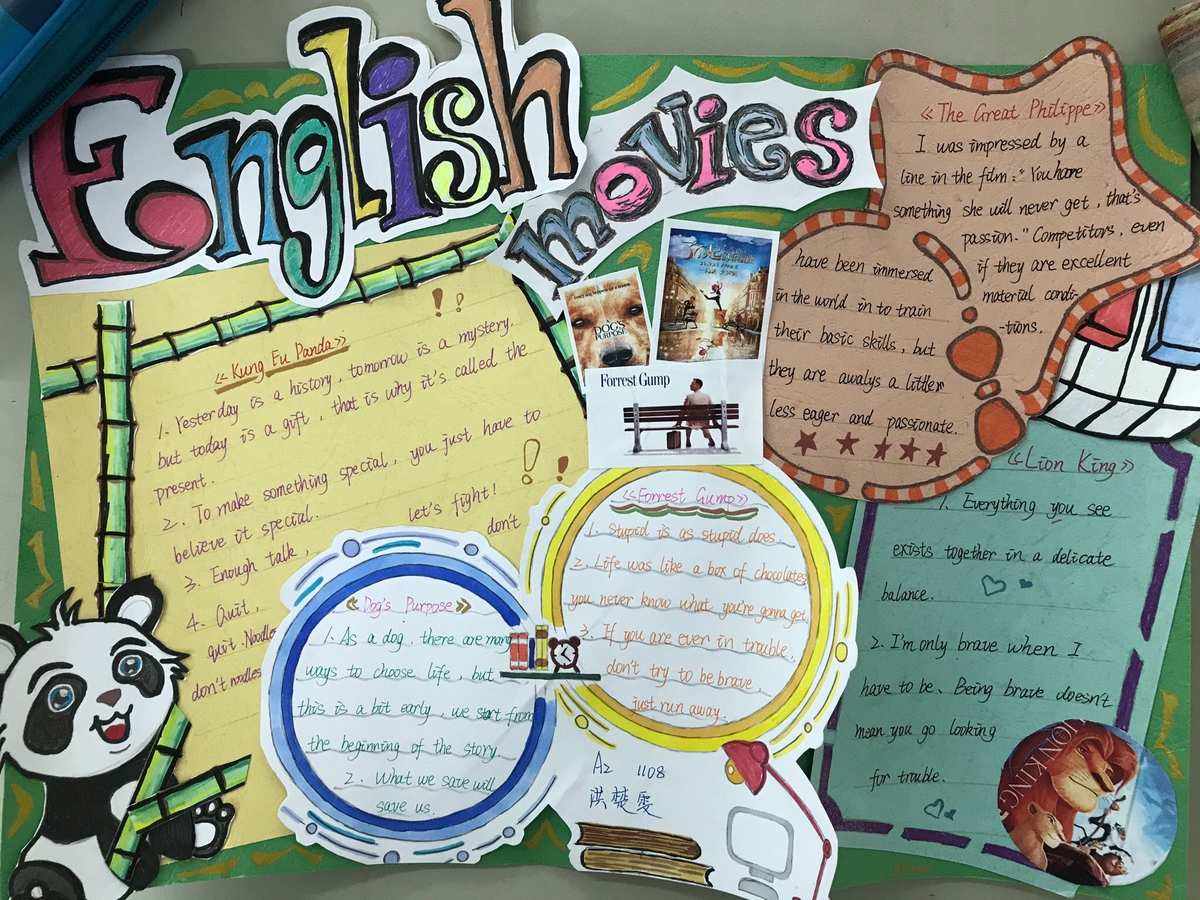 English
movies
《Kung Fu Panda》
1. Yesterday is a history, tomorrow is a mystery.
but today is a gift, that is why it's called the
present.
2. To make something special, you just have to
believe it special.
3. Enough talk, let's fight!
4. Quit, don't
quit. Noodles
don't noodles
《Dog's Purpose》
1. As a dog, there are many
ways to choose life, but
this is a bit early, we start from
the beginning of the story.
2. What we save will
save us.
DOG'S
PURPOSE
Forrest Gump
《Forrest Gump》
1. Stupid is as stupid does.
2. Life was like a box of chocolates
you never know what you're gonna get.
3. If you are ever in trouble,
don't try to be brave,
just run away.
A2 1108
洪楚雯
《The Great Philippe》
I was impressed by a
line in the film: "You have
something she will never get, that's
passion." Competitors, even
if they are excellent
material condi-
-tions.
have been immersed
in the world in to train
their basic skills, but
they are awalys a littler
less eager and passionate.
《Lion King》
1. Everything you see
exists together in a delicate
balance.
2. I'm only brave when I
have to be. Being brave doesn't
mean you go looking
for trouble.
LION KING